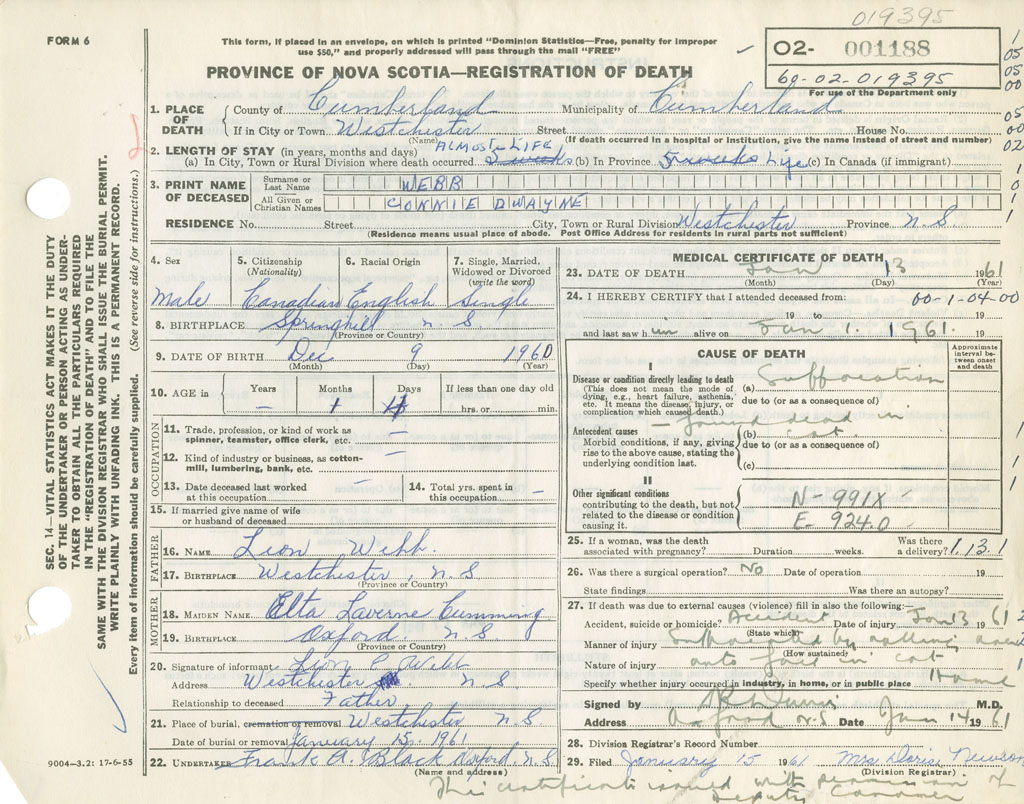 019395
FORM 6
This form, if placed in an envelope, on which is printed "Dominion Statistics—Free, penalty for improper
use $50," and properly addressed will pass through the mail "FREE"
02- 001188
60-02-019395
For use of the Department only
PROVINCE OF NOVA SCOTIA—REGISTRATION OF DEATH
1. PLACE OF DEATH County of Cumberland Municipality of Cumberland
If in City or Town Westchester Street House No.
(Name) (If death occurred in a hospital or institution, give the name instead of street and number)
2. LENGTH OF STAY (in years, months and days) ALMOST LIFE
(a) In City, Town or Rural Division where death occurred 5 weeks (b) In Province 5 weeks Life (c) In Canada (if immigrant)
3. PRINT NAME OF DECEASED
Surname or Last Name WEBB
All Given or Christian Names CONNIE DWAYNE
RESIDENCE No. Street City, Town or Rural Division Westchester Province N.S
(Residence means usual place of abode. Post Office Address for residents in rural parts not sufficient)
4. Sex Male
5. Citizenship (Nationality) Canadian
6. Racial Origin English
7. Single, Married, Widowed or Divorced (write the word) Single
8. BIRTHPLACE Springhill N.S
(Province or Country)
9. DATE OF BIRTH Dec 9 1960
(Month) (Day) (Year)
10. AGE in Years Months Days If less than one day old
– 1 4 hrs. or min.
OCCUPATION
11. Trade, profession, or kind of work as spinner, teamster, office clerk, etc. –
12. Kind of industry or business, as cotton-mill, lumbering, bank, etc. –
13. Date deceased last worked at this occupation –
14. Total yrs. spent in this occupation –
15. If married give name of wife or husband of deceased
FATHER
16. NAME Leon Webb.
17. BIRTHPLACE Westchester, N.S
(Province or Country)
MOTHER
18. MAIDEN NAME Elta Laverne Cumming
19. BIRTHPLACE Oxford. N.S
(Province or Country)
20. Signature of informant Leon E Webb
Address Westchester N.S
Relationship to deceased Father
21. Place of burial, cremation or removal Westchester N.S
Date of burial or removal January 15, 1961
22. UNDERTAKER Frank A. Black Oxford. N.S
(Name and address)
MEDICAL CERTIFICATE OF DEATH
23. DATE OF DEATH Jan 13 1961
(Month) (Day) (Year)
24. I HEREBY CERTIFY that I attended deceased from: 00-1-04-00
19 to 19
and last saw him alive on Jan 1. 1961. 19
CAUSE OF DEATH
Approximate interval between onset and death
I
Disease or condition directly leading to death (a) Suffocation
(This does not mean the mode of dying, e.g., heart failure, asthenia, etc. It means the disease, injury, or complication which caused death.)
due to (or as a consequence of)
– found dead in
Antecedent causes (b) cot.
Morbid conditions, if any, giving rise to the above cause, stating the underlying condition last.
due to (or as a consequence of)
(c)
II
Other significant conditions contributing to the death, but not related to the disease or condition causing it.
N-991X
E 924.0
25. If a woman, was the death associated with pregnancy? Duration weeks. Was there a delivery? 1.13.1
26. Was there a surgical operation? No Date of operation 19
State findings Was there an autopsy?
27. If death was due to external causes (violence) fill in also the following:—
Accident, suicide or homicide? Accident Date of injury Jan 13 1961
(State which)
Manner of injury Suffocated by rolling
(How sustained)
Nature of injury onto face in cot
Specify whether injury occurred in industry, in home, or in public place Home
Signed by M.D.
Address Oxford N.S Date Jan 14 1961
28. Division Registrar's Record Number
29. Filed January 15 1961 Mrs Doris Newson
(Division Registrar)
This certificate issued with permission of
Deputy Coroner
SEC. 14—VITAL STATISTICS ACT MAKES IT THE DUTY
OF THE UNDERTAKER OR PERSON ACTING AS UNDER-
TAKER TO OBTAIN ALL THE PARTICULARS REQUIRED
IN THE "REGISTRATION OF DEATH" AND TO FILE THE
SAME WITH THE DIVISION REGISTRAR WHO SHALL ISSUE THE BURIAL PERMIT.
WRITE PLAINLY WITH UNFADING INK. THIS IS A PERMANENT RECORD.
Every item of information should be carefully supplied. (See reverse side for instructions.)
9004—3.2: 17-6-55